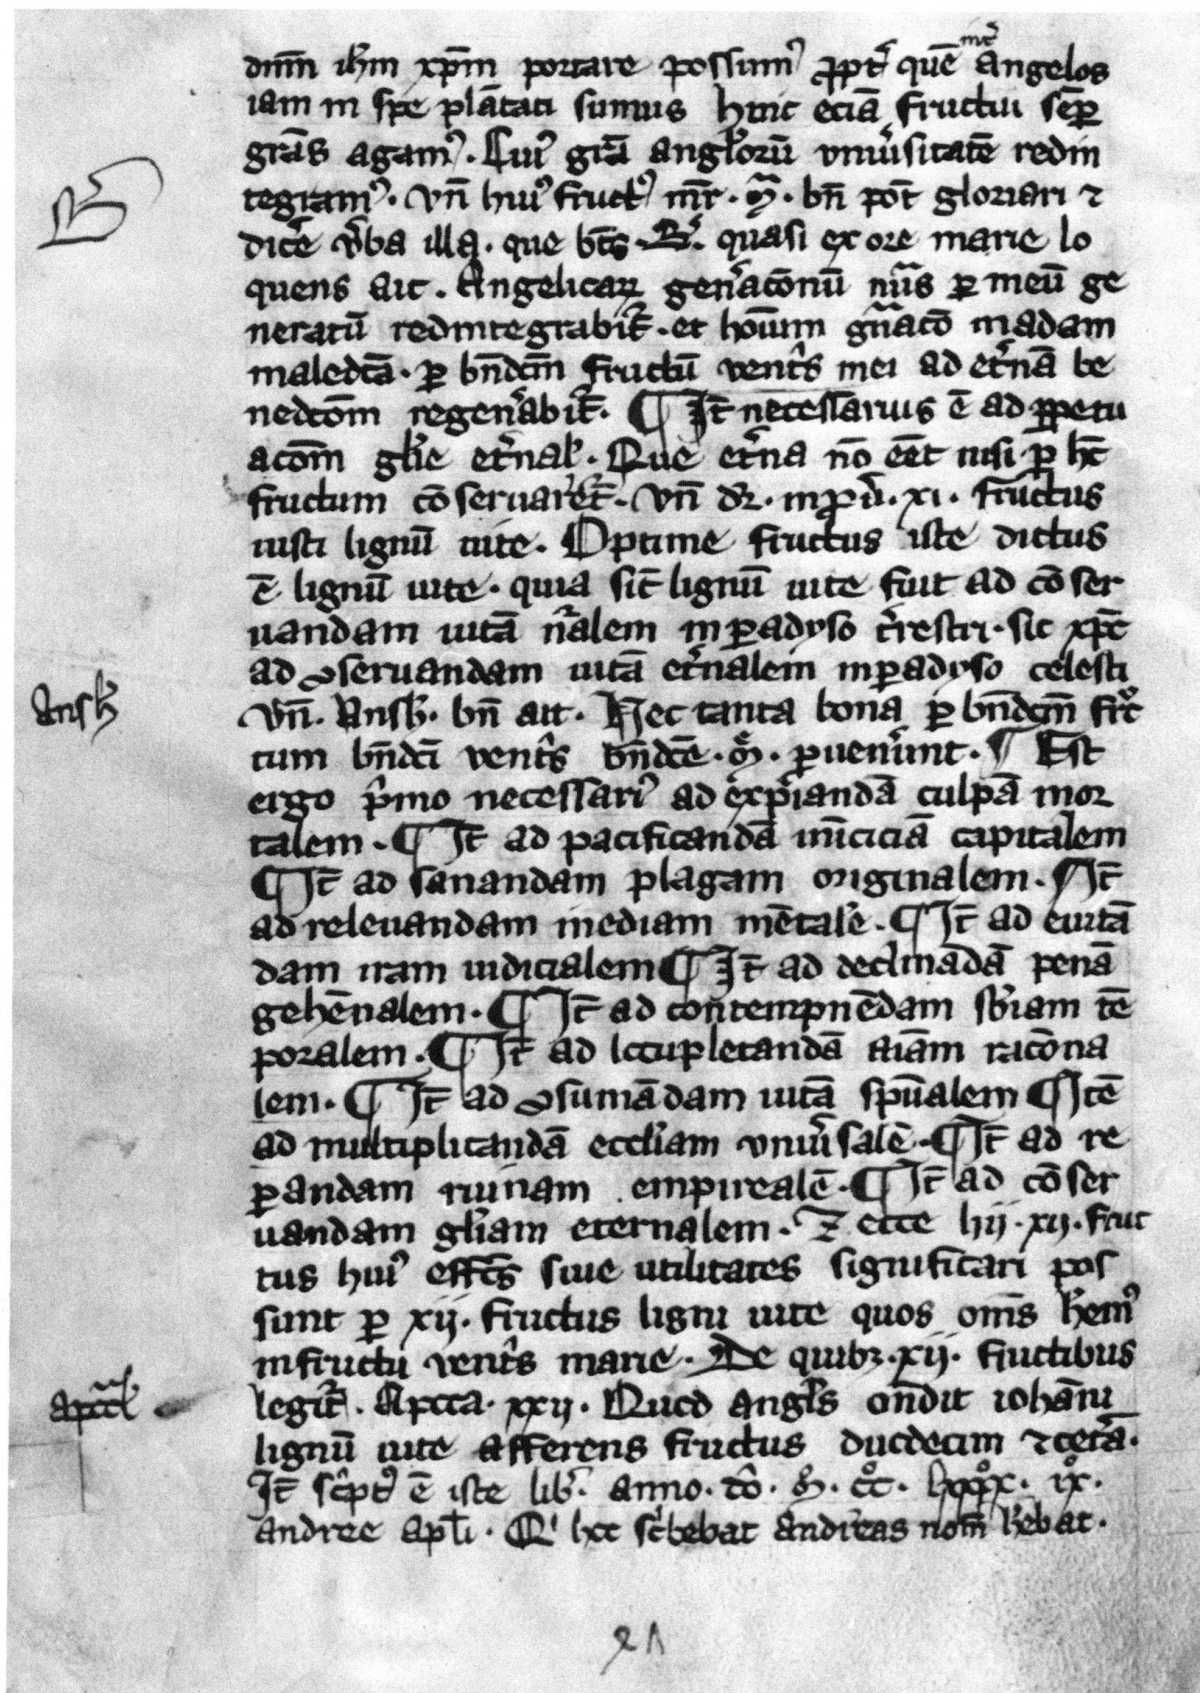 dnm̄ ihm̄ xp̄m portare possum⁹ ꝓpt̉ quē int̉ angelos
iam in spe plātati sumus huic eciā fructui sēꝑ
grās agam⁹. Cui⁹ grā angl̉orū vniủsitatē redin
tegram⁹. vn̄ hui⁹ fruct⁹ mr̄. m̄ᵃ. bn̄ pōt gloriari ⁊
dicē v̉ba illa. que bt̄s .B̉. quasi ex ore marie lo
quens ait. Angelicaꝝ gen̉acōnū nūs ꝑ meū ge
neratū redintegrabit̉. et hoīum gn̄acō in adam
maledc̄a. ꝑ bn̄dcm̄ fructū vent̉s mei ad et̉nā be
nedcōm regen̉abit̉. ¶ It̄ necessarius ē ad ꝑpetu
acōm gl̉ie et̉nal̉. Que et̉na nō eēt nisi ꝑ hc̄
fructum cōseruaret̉. vn̄ dr̄. in ꝓủ. xi. fructus
iusti lignū uite. Optime fructus iste dictus
ē lignū uite. quia sic̄ lignū uite fuit ad cōser
uandam uitā nr̄alem in ꝑadyso t̉restri. sic xp̄c
ad ꝯseruandam uitā et̉nalem in ꝑadyso celesti
vn̄. Ansl̉. bn̄ ait. Hec tanta bona ꝑ bn̄dcm̄ fruc
tum bn̄dc̄i vent̉s bn̄dc̄e. m̄. ꝑuen̉unt. ¶ Est
ergo p̉mo necessari⁹ ad expiandā culpā mor
talem. ¶ It̄ ad pacificandā inīciciā capitalem
¶ It̄ ad sanandam plagam originalem. ¶ It̄
ad releuandam inediam mētalē. ¶ It̄ ad euitā
dam iram iudicialem ¶ It̄ ad declinādā penā
gehēnalem. ¶ It̄ ad contempnēdam sb̉iam tē
poralem. ¶ It̄ ad locupletandā aīam racōna
lem. ¶ It̄ ad ꝯsumādam uitā sp̄ualem ¶ Itē
ad multiplicandā eccl̉iam vniủsalē. ¶ It̄ ad re
ꝑandam ruinam empirealē. ¶ It̄ ad cōser
uandam gl̉iam eternalem. ⁊ ecce hii. xii. fruc
tus hui⁹ effc̄s siue utilitates significari pos
sunt ꝑ xii. fructus ligni uite quos om̄s hem⁹
in fructu vent̉s marie. De quibꝫ. xii. fructibus
legit̉. Apcca. xxii. Quod angl̉s on̄dit iohāni
lignū uite afferens fructus duodecim ⁊ cetā.
It̄ sc̉pt⁹ ē iste lib̉. anno. dō. m̊. cc̊c. lxxx̊x. ix̊.
andree apl̄i. Qⁱ hoc sc̉bebat andreas nom̄ h̉ebat.
B
Ansl̉
apocal̉
21